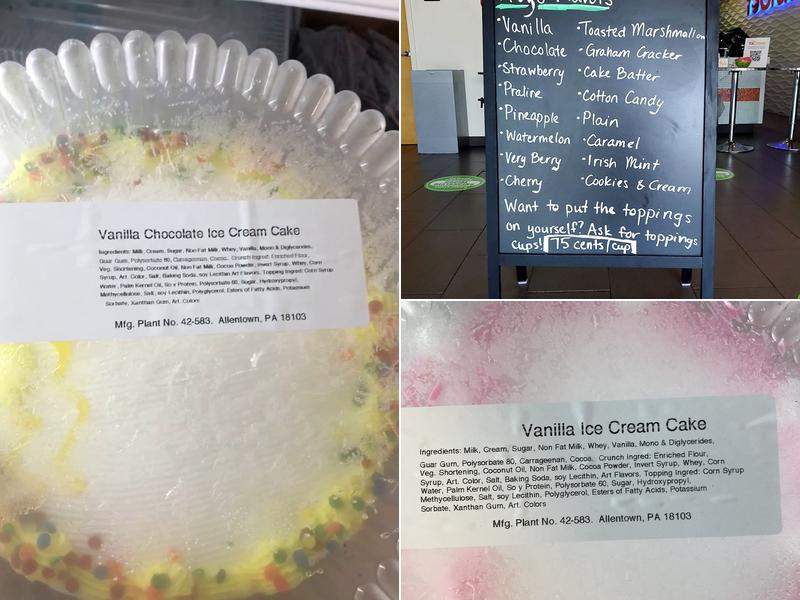 Vanilla Chocolate Ice Cream Cake
Ingredients: Milk, Cream, Sugar, Non Fat Milk, Whey, Vanilla, Mono & Diglycerides,
Guar Gum, Polysorbate 80, Carrageenan, Cocoa. Crunch Ingred: Enriched Flour,
Veg. Shortening, Coconut Oil, Non Fat Milk, Cocoa Powder, Invert Syrup, Whey, Corn
Syrup, Art. Color, Salt, Baking Soda, soy Lecithin Art Flavors. Topping Ingred: Corn Syrup
Water, Palm Kernel Oil, So y Protein, Polysorbate 60, Sugar, Hydroxypropyl,
Methycellulose, Salt, soy Lecithin, Polyglycerol, Esters of Fatty Acids, Potassium
Sorbate, Xanthan Gum, Art. Colors
Mfg. Plant No. 42-583. Allentown, PA 18103
Flavors
•Vanilla
•Chocolate
•Strawberry
•Praline
•Pineapple
•Watermelon
•Very Berry
•Cherry
•Toasted Marshmallow
•Graham Cracker
•Cake Batter
•Cotton Candy
•Plain
•Caramel
•Irish Mint
•Cookies & Cream
Want to put the toppings
on yourself? Ask for toppings
cups! 75 cents/cup
Vanilla Ice Cream Cake
Ingredients: Milk, Cream, Sugar, Non Fat Milk, Whey, Vanilla, Mono & Diglycerides,
Guar Gum, Polysorbate 80, Carrageenan, Cocoa. Crunch ingred: Enriched Flour,
Veg. Shortening, Coconut Oil, Non Fat Milk, Cocoa Powder, Invert Syrup, Whey, Corn
Syrup, Art. Color, Salt, Baking Soda, soy Lecithin, Art Flavors. Topping Ingred: Corn Syrup
Water, Palm Kernel Oil, So y Protein, Polysorbate 60, Sugar, Hydroxypropyl,
Methycellulose, Salt, soy Lecithin, Polyglycerol, Esters of Fatty Acids, Potassium
Sorbate, Xanthan Gum, Art. Colors
Mfg. Plant No. 42-583. Allentown, PA 18103